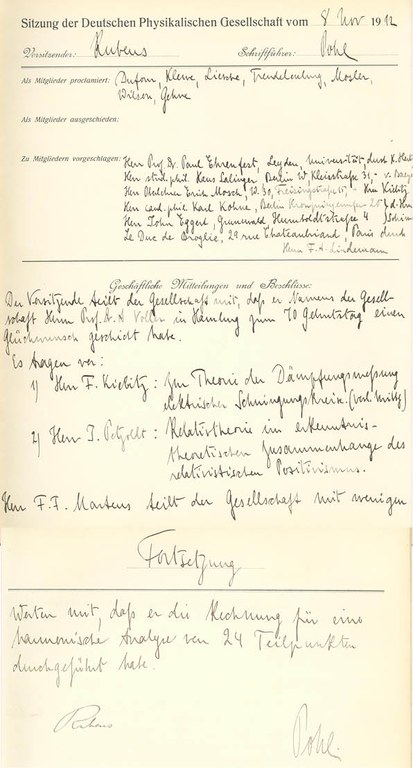 Sitzung der Deutschen Physikalischen Gesellschaft vom 8 Nov 1912
Vorsitzender: Rubens Schriftführer: Pohl
Als Mitglieder proclamiert: Dufour, Kleine, Trendelenburg, Mosler,
Wilson, Gehne
Als Mitglieder ausgeschieden:
Zu Mitgliedern vorgeschlagen: Herr Prof. Dr. Paul Ehrenfest, Leyden, Universität durch
Herr stud. phil. Hans Berlin W. Kleiststraße 31
Herr Erich Mosch, W. 30, Kiebitz
Herr cand. phil. Karl Berlin
Herr John Eggert, Grunewald Humboldtstraße 4
Le Duc de Broglie, 29 rue Chateaubriand, Paris durch
Herrn F. A. Lindemann
Geschäftliche Mitteilungen und Beschlüsse:
Der Vorsitzende teilt der Gesellschaft mit, daß er Namens der Gesell-
schaft Herrn Prof. A. Voller in Hamburg zum 70 Geburtstag einen
Glückwunsch geschickt habe.
Es tragen vor:
1) Herr F. Kiebitz: Zur Theorie der Dämpfungsmessung
elektrischer Schwingungskreise. (vorl. Mittlg)
2) Herr J. Petzoldt: Relattheorie im erkenntnis-
theoretischen Zusammenhange des
relativistischen Positivismus.
Herr F. F. Martens teilt der Gesellschaft mit wenigen
Fortsetzung
Worten mit, daß er die Rechnung für eine
harmonische Analyse von 24 Teilpunkten
durchgeführt habe.
Rubens
Pohl.